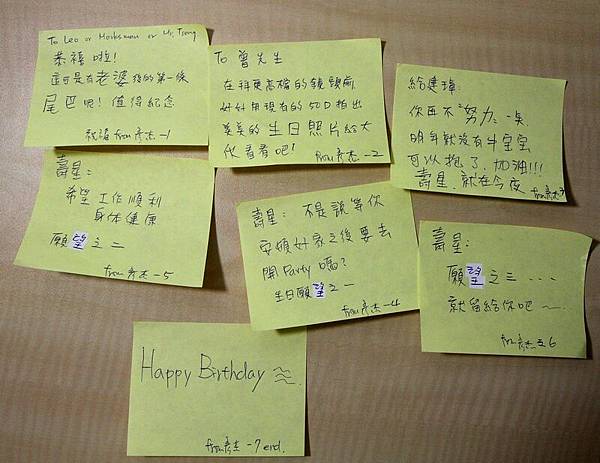 To Leo or Marksman or Mr. Tseng
恭禧啦!
這可是有老婆後的第一條
尾巴呢! 值得紀念
祝福 from 彥杰-1
To 曾先生
在拜更高檔的鏡頭前
好好用現有的50D拍出
美美的生日照片給大
伙看看吧!
from 彥杰-2
給建璋:
你再不"努力"一點
明年就沒有牛寶寶
可以抱了. 加油!!!
壽星, 就在今夜
from 彥杰-3
壽星: 不是說等你
安頓好家之後要去
開Party嗎?
生日願望之一
from 彥杰-4
壽星:
希望工作順利
身体健康
願望之二
from 彥杰-5
壽星:
願望之三...
就留給你吧~
from 彥杰 6
Happy Birthday
from 彥杰-7 end.